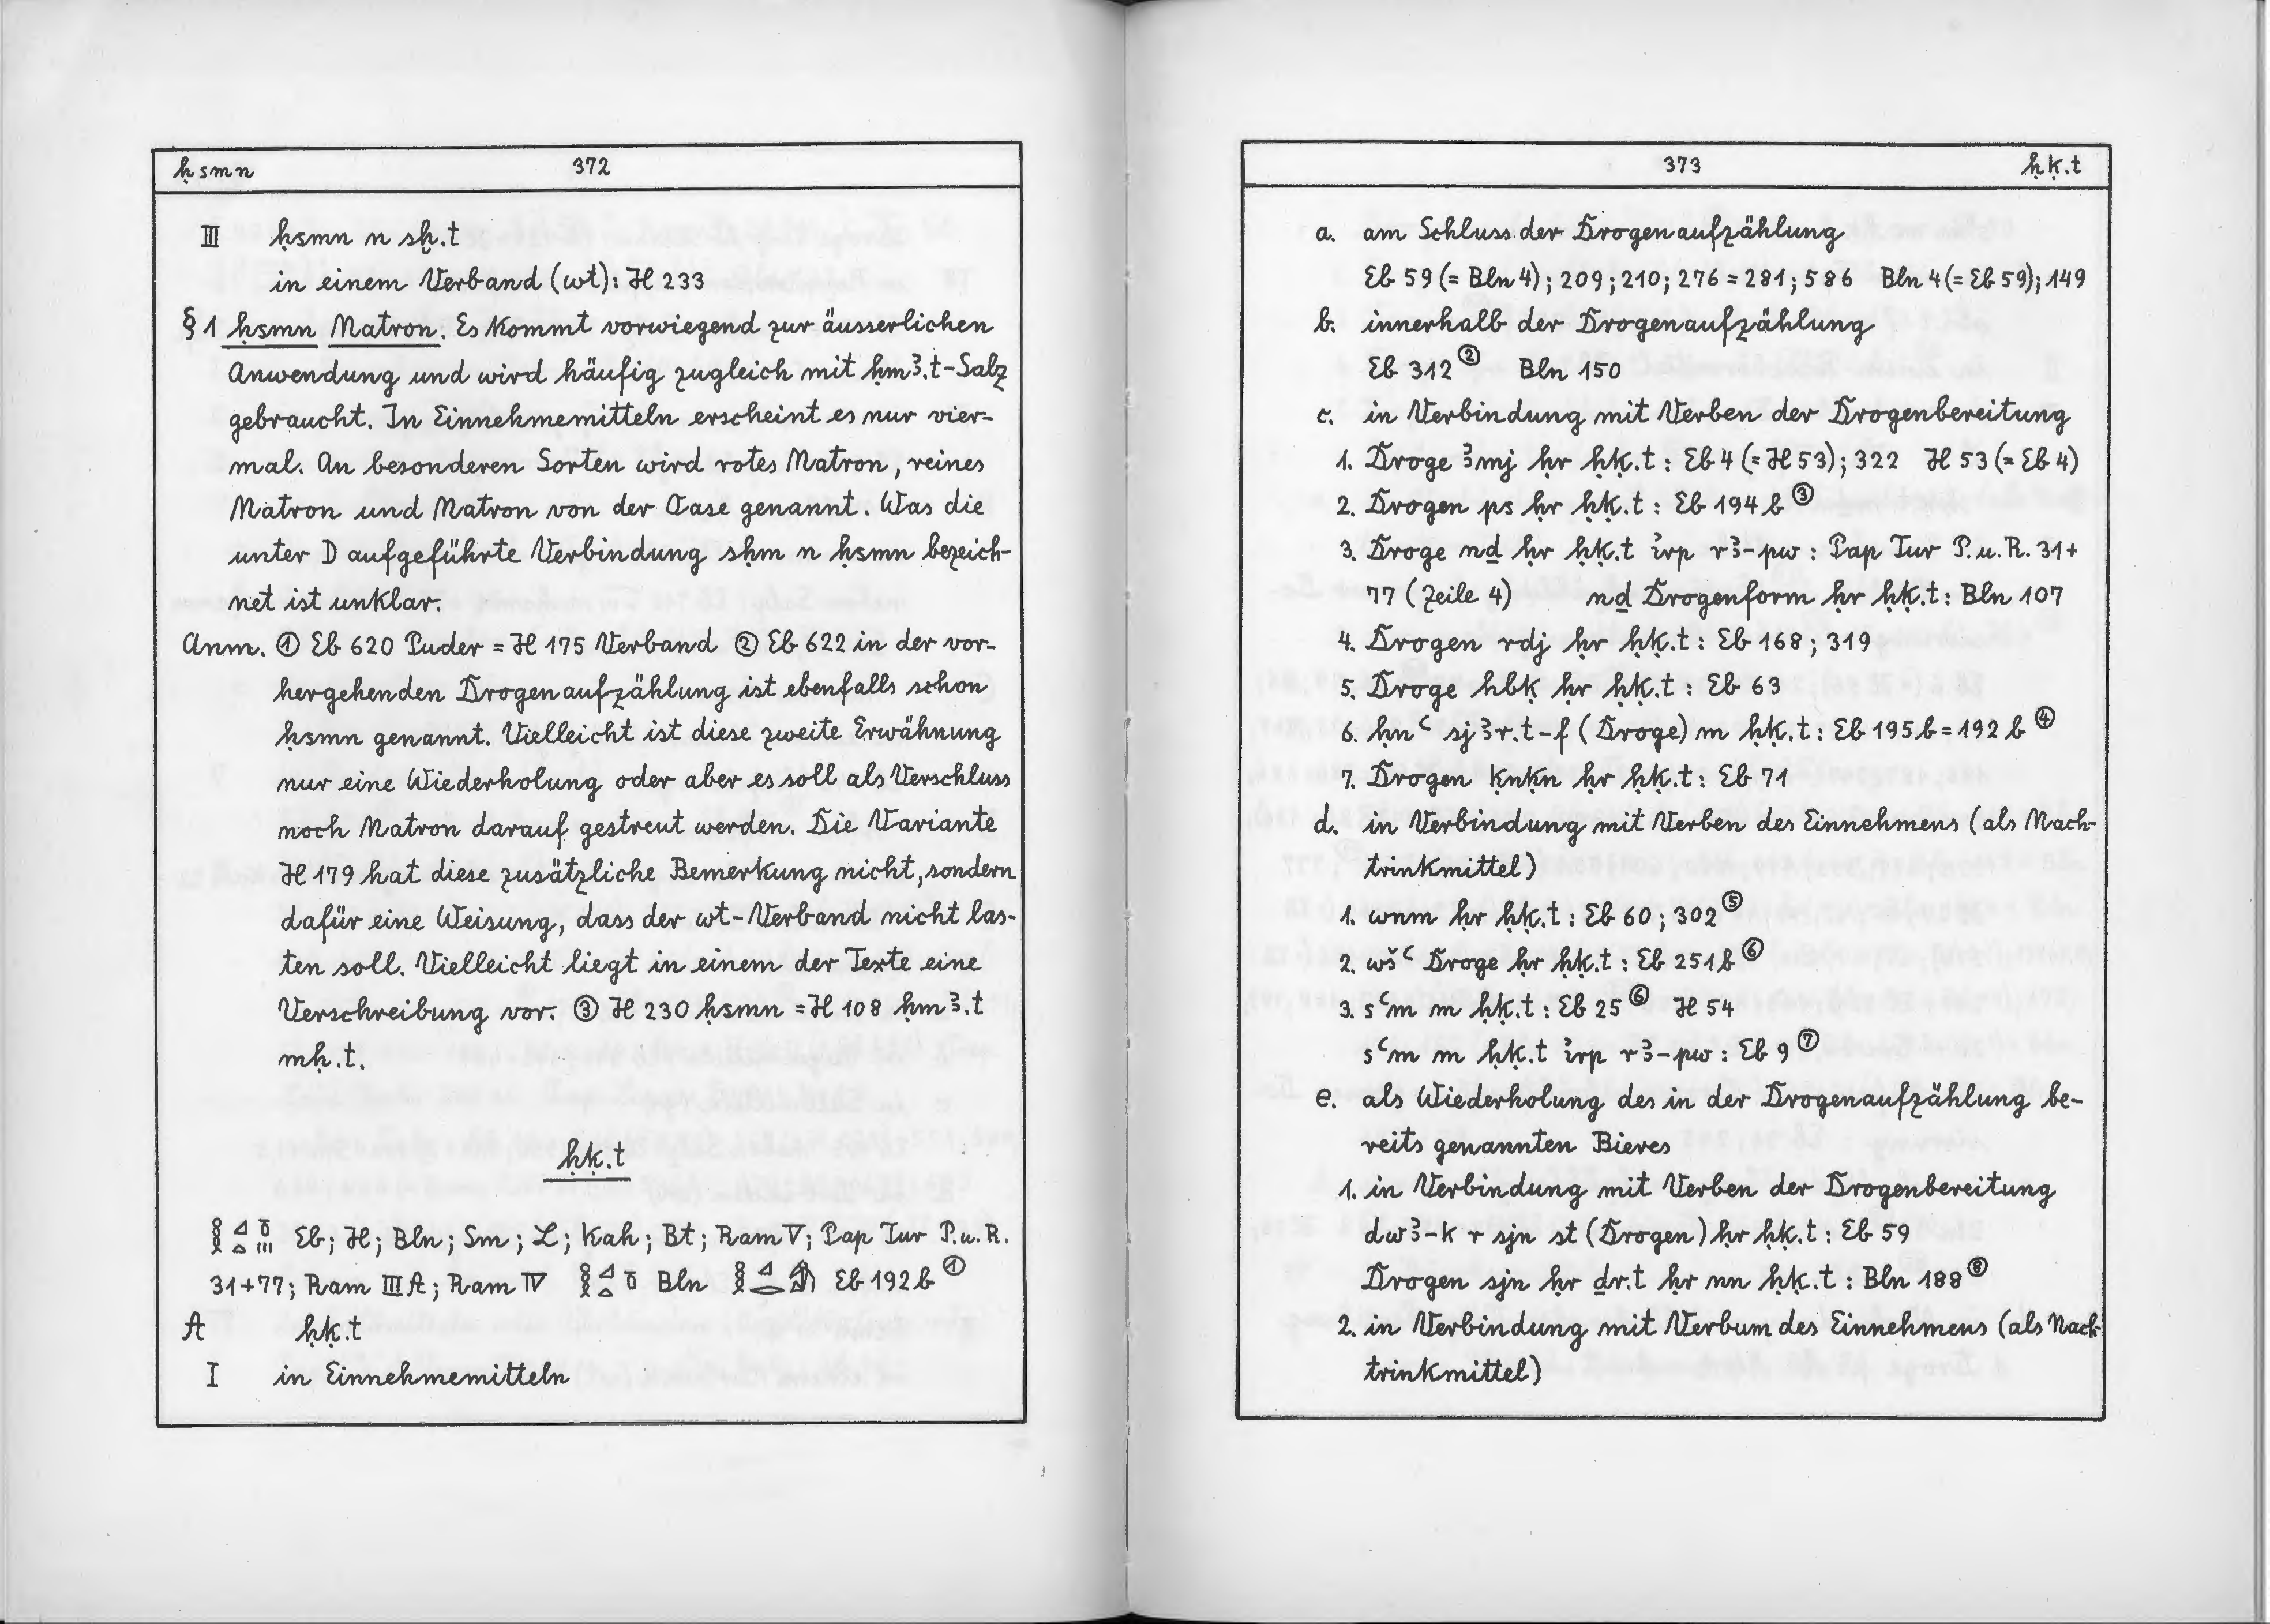 ḥsmn 372
III ḥsmn n sḫ.t
in einem Verband (wt): H 233
§ 1 ḥsmn Natron. Es kommt vorwiegend zur äusserlichen
Anwendung und wird häufig zugleich mit ḥmꜣ.t-Salz
gebraucht. In Einnehmemitteln erscheint es nur vier-
mal. An besonderen Sorten wird rotes Natron, reines
Natron und Natron von der Oase genannt. Was die
unter D aufgeführte Verbindung sḥm n ḥsmn bezeich-
net ist unklar.
Anm. ① Eb 620 Puder = H 175 Verband ② Eb 622 in der vor-
hergehenden Drogenaufzählung ist ebenfalls schon
ḥsmn genannt. Vielleicht ist diese zweite Erwähnung
nur eine Wiederholung oder aber es soll als Verschluss
noch Natron darauf gestreut werden. Die Variante
H 179 hat diese zusätzliche Bemerkung nicht, sondern
dafür eine Weisung, dass der wt-Verband nicht las-
ten soll. Vielleicht liegt in einem der Texte eine
Verschreibung vor. ③ H 230 ḥsmn = H 108 ḥmꜣ.t
mḥ.t.
ḥḳ.t
𓎛𓈎𓏏𓏊𓏥 Eb; H; Bln; Sm; L; Kah; Bt; Ram V; Pap Tur P.u.R.
31+77; Ram III A; Ram IV 𓎛𓈎𓏏𓏊 Bln Eb 192 b ①
A ḥḳ.t
I in Einnehmemitteln
373 ḥḳ.t
a. am Schluss der Drogenaufzählung
Eb 59 (= Bln 4); 209; 210; 276 = 281; 586 Bln 4 (= Eb 59); 149
b. innerhalb der Drogenaufzählung
Eb 312 ② Bln 150
c. in Verbindung mit Verben der Drogenbereitung
1. Droge ꜣmj ḥr ḥḳ.t: Eb 4 (= H 53); 322 H 53 (= Eb 4)
2. Drogen ps ḥr ḥḳ.t: Eb 194 b ③
3. Droge nḏ ḥr ḥḳ.t ỉrp rꜣ-pw: Pap Tur P.u.R. 31+
77 (Zeile 4) nḏ Drogenform ḥr ḥḳ.t: Bln 107
4. Drogen rdj ḥr ḥḳ.t: Eb 168; 319
5. Droge hbḳ ḥr ḥḳ.t: Eb 63
6. ḥnꜥ sjꜣr.t-f (Droge) m ḥḳ.t: Eb 195 b = 192 b ④
7. Drogen ḳnḳn ḥr ḥḳ.t: Eb 71
d. in Verbindung mit Verben des Einnehmens (als Nach-
trinkmittel)
1. wnm ḥr ḥḳ.t: Eb 60; 302 ⑤
2. wšꜥ Droge ḥr ḥḳ.t: Eb 251 b ⑥
3. sꜥm m ḥḳ.t: Eb 25 ⑥ H 54
sꜥm m ḥḳ.t ỉrp rꜣ-pw: Eb 9 ⑦
e. als Wiederholung des in der Drogenaufzählung be-
reits genannten Bieres
1. in Verbindung mit Verben der Drogenbereitung
dwꜣ-k r sjn st (Drogen) ḥr ḥḳ.t: Eb 59
Drogen sjn ḥr ḏr.t ḥr nn ḥḳ.t: Bln 188 ⑧
2. in Verbindung mit Verbum des Einnehmens (als Nach-
trinkmittel)